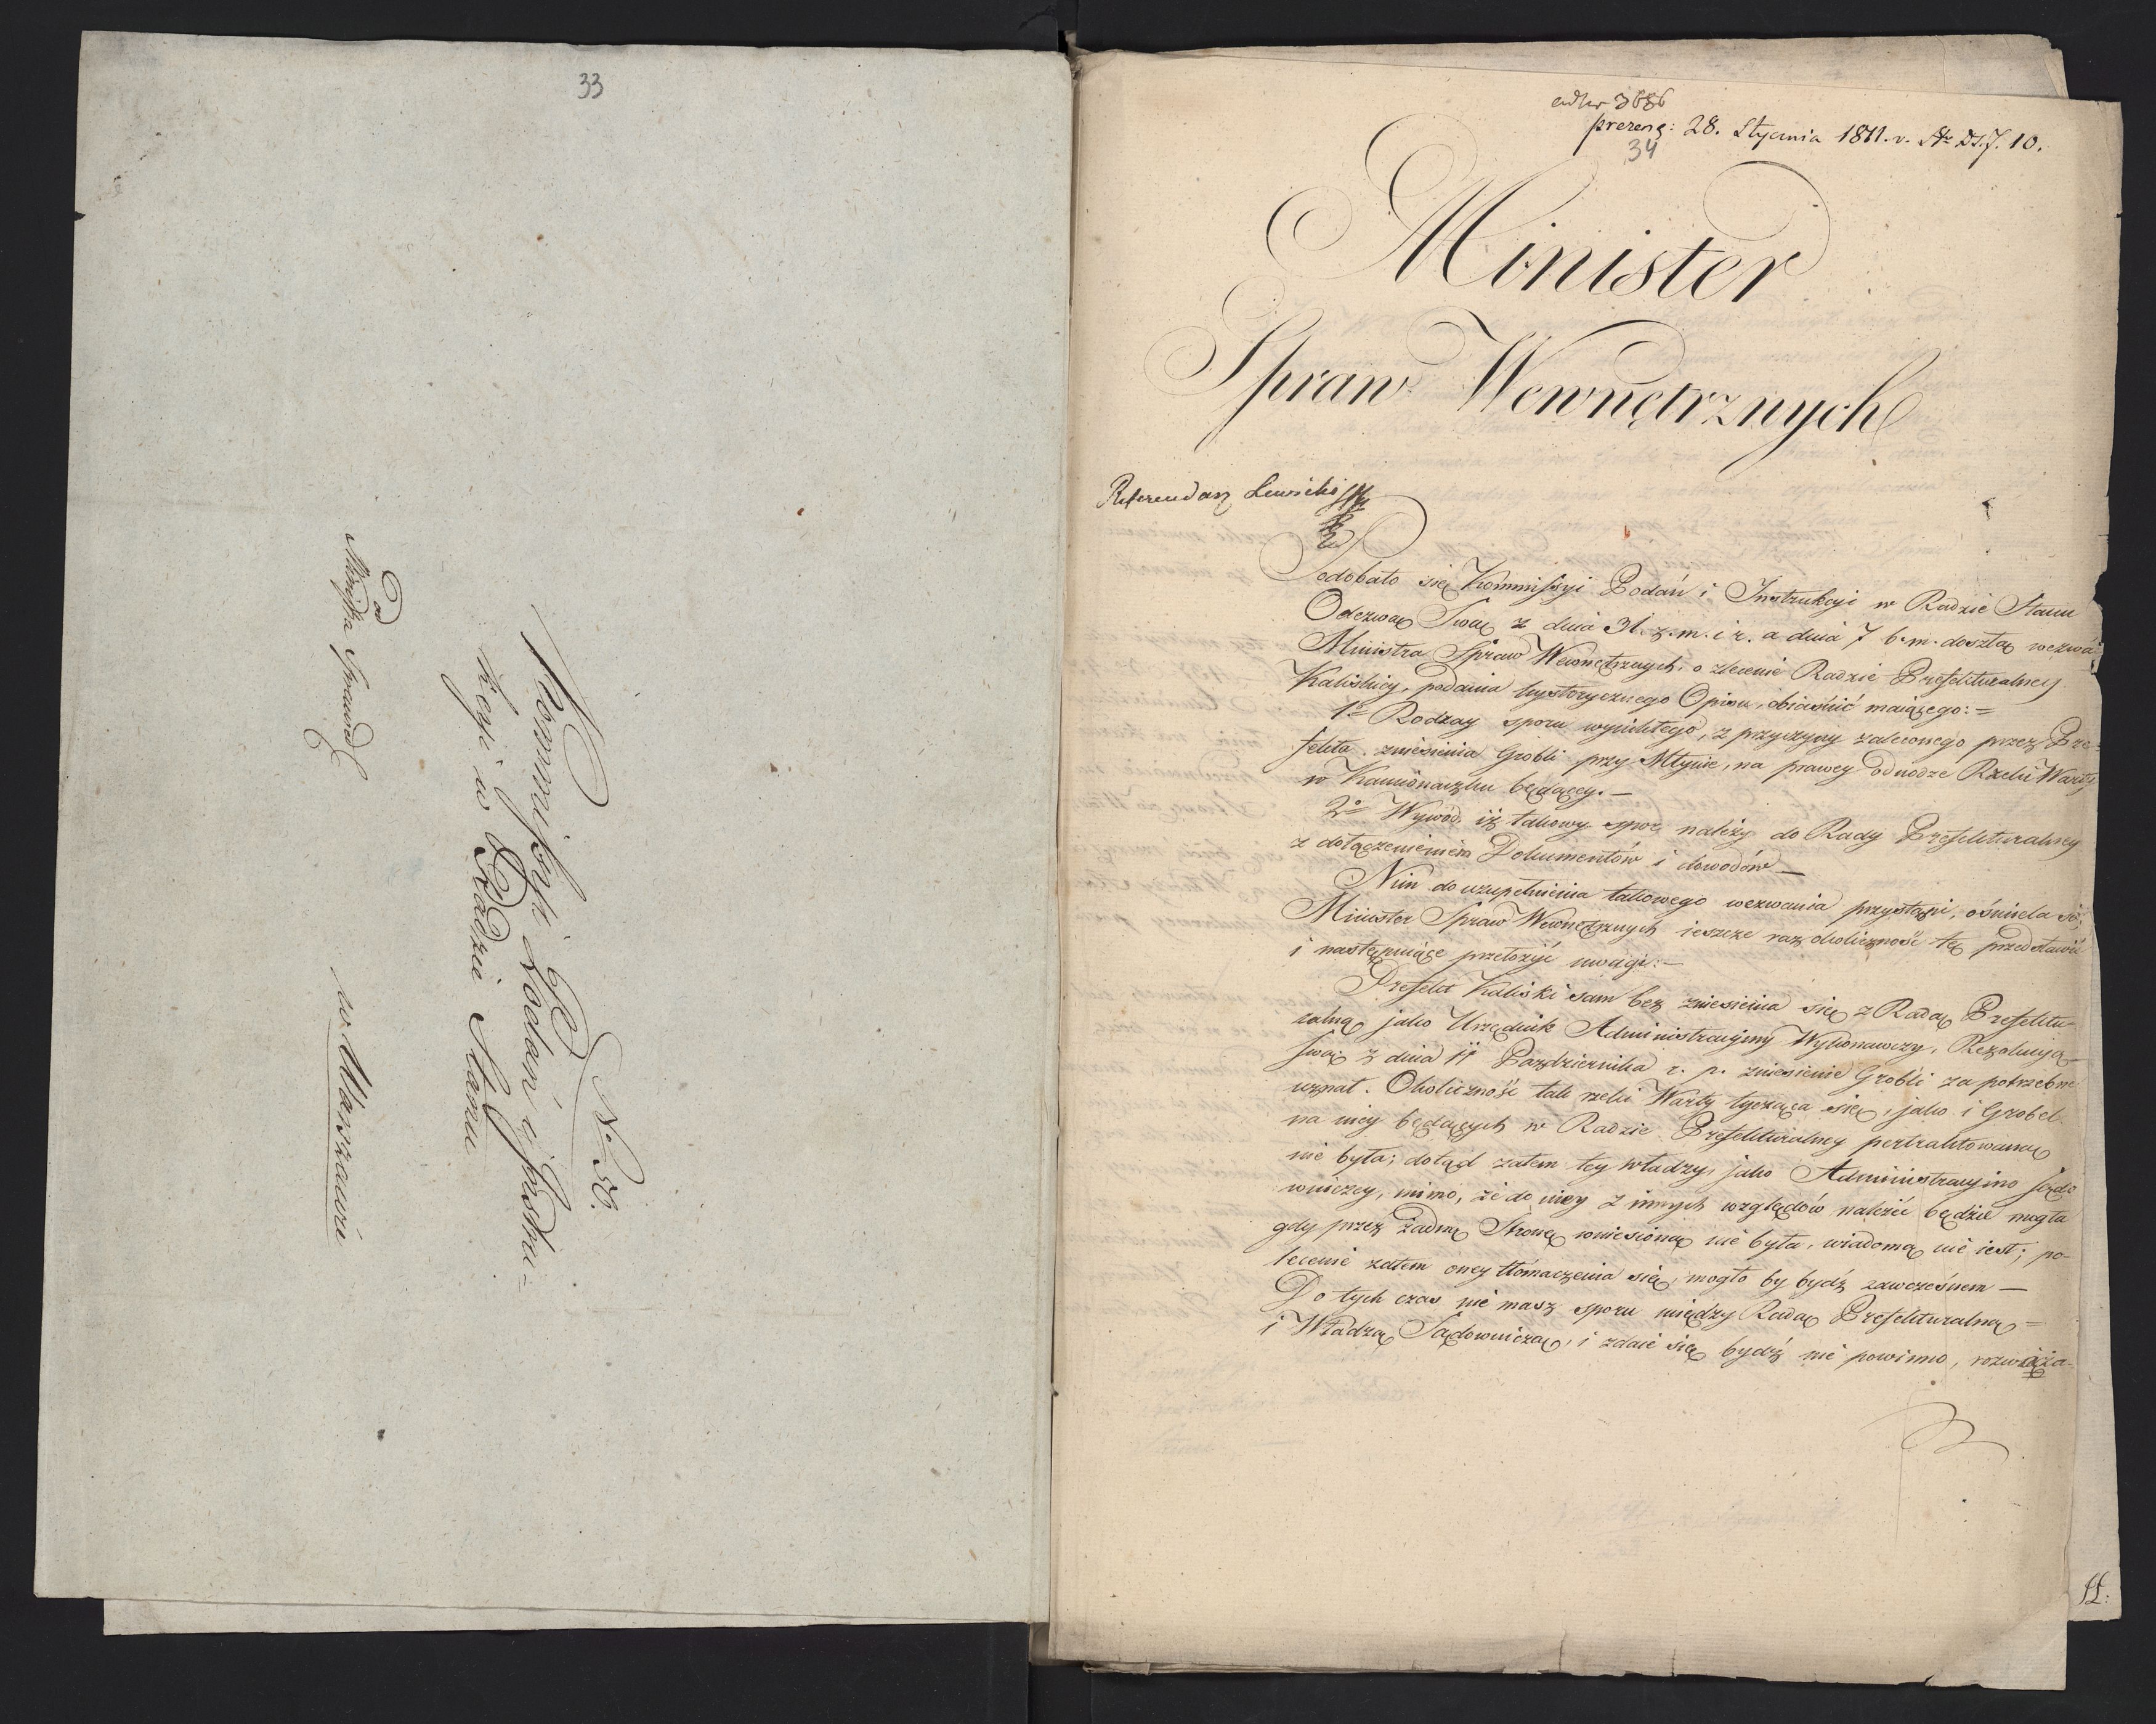 33
Kommissyi Podań i Instru-
kcyi w Radzie Stanu
No 58.
Od
Ministra Spraw
w Warszawie
ad Nr 3686
prezent: 28. Stycznia 1811. r. 10.
34
Minister
Spraw Wewnętrznych
Referendarz Lewicki
Podobało się Kommissyi Podań i Instrukcyi w Radzie Stanu
Odezwą Swą z dnia 31. z. m. i r. a dnia 7 b. m. doszłą wezwać
Ministra Spraw Wewnętrznych, o zlecenie Radzie Prefekturalney
Kaliskiey, podania hystorycznego Opisu, obiaśnić maiącego:=
1o Rodzay sporu wynikłego, z przyczyny zaleconego przez Pre-
fekta zniesienia Grobli przy Młynie, na prawey odnodze Rzeki Warty
w Kamionaczku będącey.—
2o Wywód, iż takowy spor należy do Rady Prefekturalney
z dołączeniem Dokumentów i dowodów—
Nim do uzupełnienia takowego wezwania przystąpi, ośmiela się
Minister Spraw Wewnętrznych ieszcze raz okoliczność tę przedstawić
i następuiące przełożyć uwagi:—
Prefekt Kaliski sam bez zniesienia się z Radą Prefektu-
ralną jako Urzędnik Administracyiny Wykonawczy, Rezolucyą
swą z dnia 11 Października r. p. zniesienie Grobli za potrzebne
uznał. Okoliczność tak rzeki Warty tycząca się, jako i Grobel
na niey będących w Radzie Prefekturalney pertraktowaną
nie była; dotąd zatem tey władzy, jako Administracyino sądo
wniczey, mimo, że do niey z innych względów należeć będzie mogła
gdy przez żadną Stronę wniesioną nie była, wiadomą nie iest; po-
lecenie zatem oney tłómaczenia się, mogło by bydź zawcześnem—
Do tych czas nie masz sporu między Radą Prefekturalną=
i Władzą Sądowniczą, i zdaie się bydź nie powinno, rozważa-